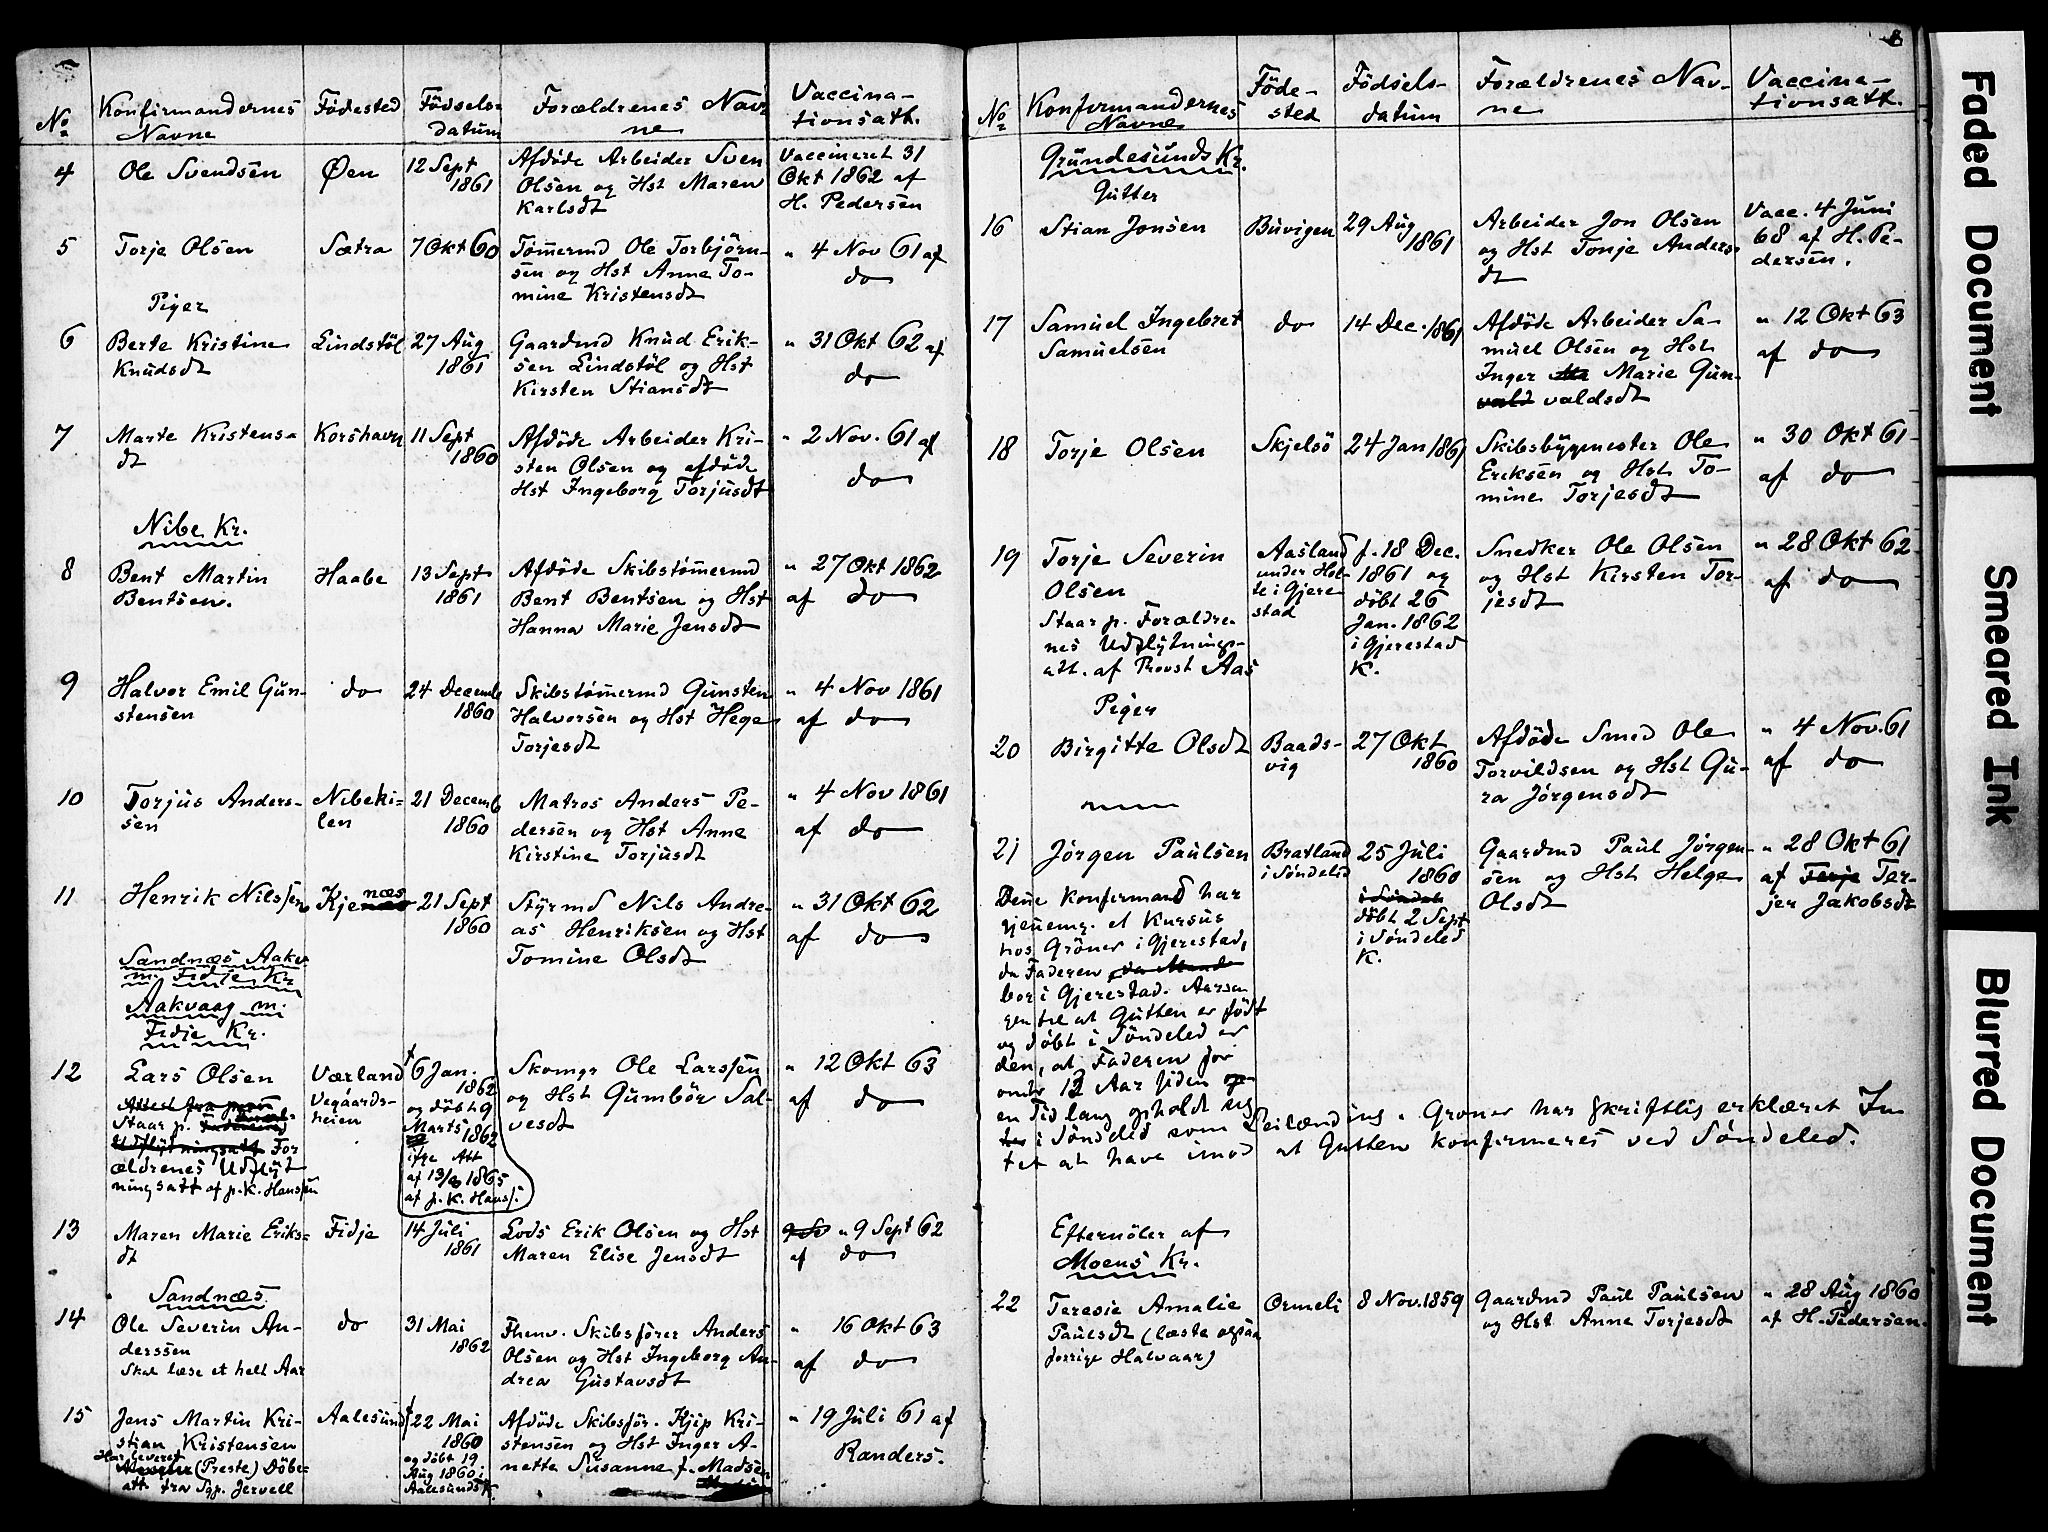 No Konfirmandernes Navne Födested Födsels- datum Forældrenes Navne Vaccina- tionsatt.
4 Ole Svendsen Øen 12 Sept 1861 Afdöde Arbeider Sven Olsen og Hst Maren Karlsdt Vaccineret 31 Okt 1862 af H. Pedersen
5 Torje Olsen Sætra 7 Okt 60 Tömermd Ole Torbjörn- sen og Hst Anne To- mine Kristensdt " 4 Nov 61 af do
Piger
6 Berte Kristine Knudsdt Lindstöl 27 Aug 1861 Gaardmd Knud Erik- sen Lindstöl og Hst Kirsten Stiansdt " 31 Okt 62 af do
7 Marte Kristens- dt Korshavn 11 Sept 1860 Afdöde Arbeider Kri- sten Olsen og afdöde Hst Ingeborg Torjusdt " 2 Nov. 61 af do
Nibe Kr.
8 Bent Martin Bentsen. Haabe 13 Sept 1861 Afdöde Skibstömermd Bent Bentsen og Hst Hanna Marie Jensdt " 27 Okt 1862 af do
9 Halvor Emil Gun- stensen do 24 Decemb 1860 Skibstömermd Gunsten Halvorsen og Hst Hege Torjesdt " 4 Nov 1861 af do
10 Torjus Anders- sen Nibeki- len 21 Decemb 1860 Matros Anders Pe- dersen og Hst Anne Kirstine Torjusdt " 4 Nov 1861 af do
11 Henrik Nilssen Kjenæs 21 Sept 1860 Styrmd Nils Andre- as Henriksen og Hst Tomine Olsdt " 31 Okt 62 af do
Sandnæs Aakv. m. Fidje Kr
Aakvaag m. Fidje Kr.
12 Lars Olsen Værland Vegaards- heien 6 Jan. 1862 og döbt 9 Marts 1862 ifge Att af 13/8 1865 af p. K. Hanss. Skomgr Ole Larssen og Hst Gumbör Sal- vesdt " 12 Okt 63 af do
Staar p. For ældrenes Udflyt ningsatt af p. K. Hanssen
13 Maren Marie Eriks- dt Fidje 14 Juli 1861 Lods Erik Olsen og Hst Maren Elise Jensdt " 9 Sept 62 af do
Sandnæs
14 Ole Severin An- derssen do 31 Mai 1862 Fhenv. Skibsförer Anders Olsen og Hst Ingeborg An- drea Gustavsdt " 16 Okt 63 af do
Skal læse et helt Aar
15 Jens Martin Kri- stian Kristensen Aalesund 22 Mai 1860 og döbt 19 Aug 1860 i Aalesunds K. Afdöde Skibsför. Kjip Kri- stensen og Hst Inger A- nette Susanne f. Madsen " 19 Juli 61 af Randers.
Har leveret (Preste) Döbe- att fra Sgp. Jervell
8
No Konfirmandernes Navne Föde- sted Födsels- datum Forældrenes Nav- ne Vaccina- tionsatt.
Grundesunds Kr.
Gutter
16 Stian Jonsen Buvigen 29 Aug 1861 Arbeider Jon Olsen og Hst Tonje Anders- dt Vacc. 4 Juni 68 af H. Pe- dersen.
17 Samuel Ingebret Samuelsen do 14 Dec. 1861 Afdöde Arbeider Sa- muel Olsen og Hst Inger Marie Gun- valdsdt " 12 Okt 63 af do
18 Torje Olsen Skjelsö 24 Jan 1861 Skibsbygmester Ole Eriksen og Hst To- mine Torjesdt " 30 Okt 61 af do
19 Torje Severin Olsen Aasland under Hol- te i Gjere- stad f. 18 Dec. 1861 og döbt 26 Jan. 1862 i Gjerestad K. Snedker Ole Olsen og Hst Kirsten Tor- jesdt " 28 Okt 62 af do
Staar p. Forældre- nes Udflytnings- att. af Provst Aas
Piger
20 Birgitte Olsdt Baads- vig 27 Okt 1860 Afdöde Smed Ole Torvildsen og Hst Gu- ra Jörgensdt " 4 Nov. 61 af do
21 Jörgen Paulsen Bratland i Söndeled 25 Juli 1860 döbt 2 Sept i Söndeled K. Gaardmd Paul Jörgen- sen og Hst Helge Olsdt " 28 Okt 61 af Ter- jer Jakobsdt
Dene Konfirmand har
gjenemg. et Kursus
hos Gröner i Gjerestad,
da Faderen
bor i Gjerestad. Aarsa
gen til at Gutten er födt
og döbt i Söndeled er
den, at Faderen for
omtr 12 Aar siden
en Tid lang opholdt sig
i Söndeled som Leilænding. Gröner har skriftlig erklæret In-
tet at have imod at Gutten konfirmeres ved Söndeled.
Efternöler af
Moens Kr.
22 Teresie Amalie Paulsdt (læste ogsaa forrige Halvaar) Ormeli 8 Nov. 1859 Gaardmd Paul Paulsen og Hst Anne Torjesdt " 28 Aug 1860 af H. Pedersen.
Faded Document
Smeared Ink
Blurred Document